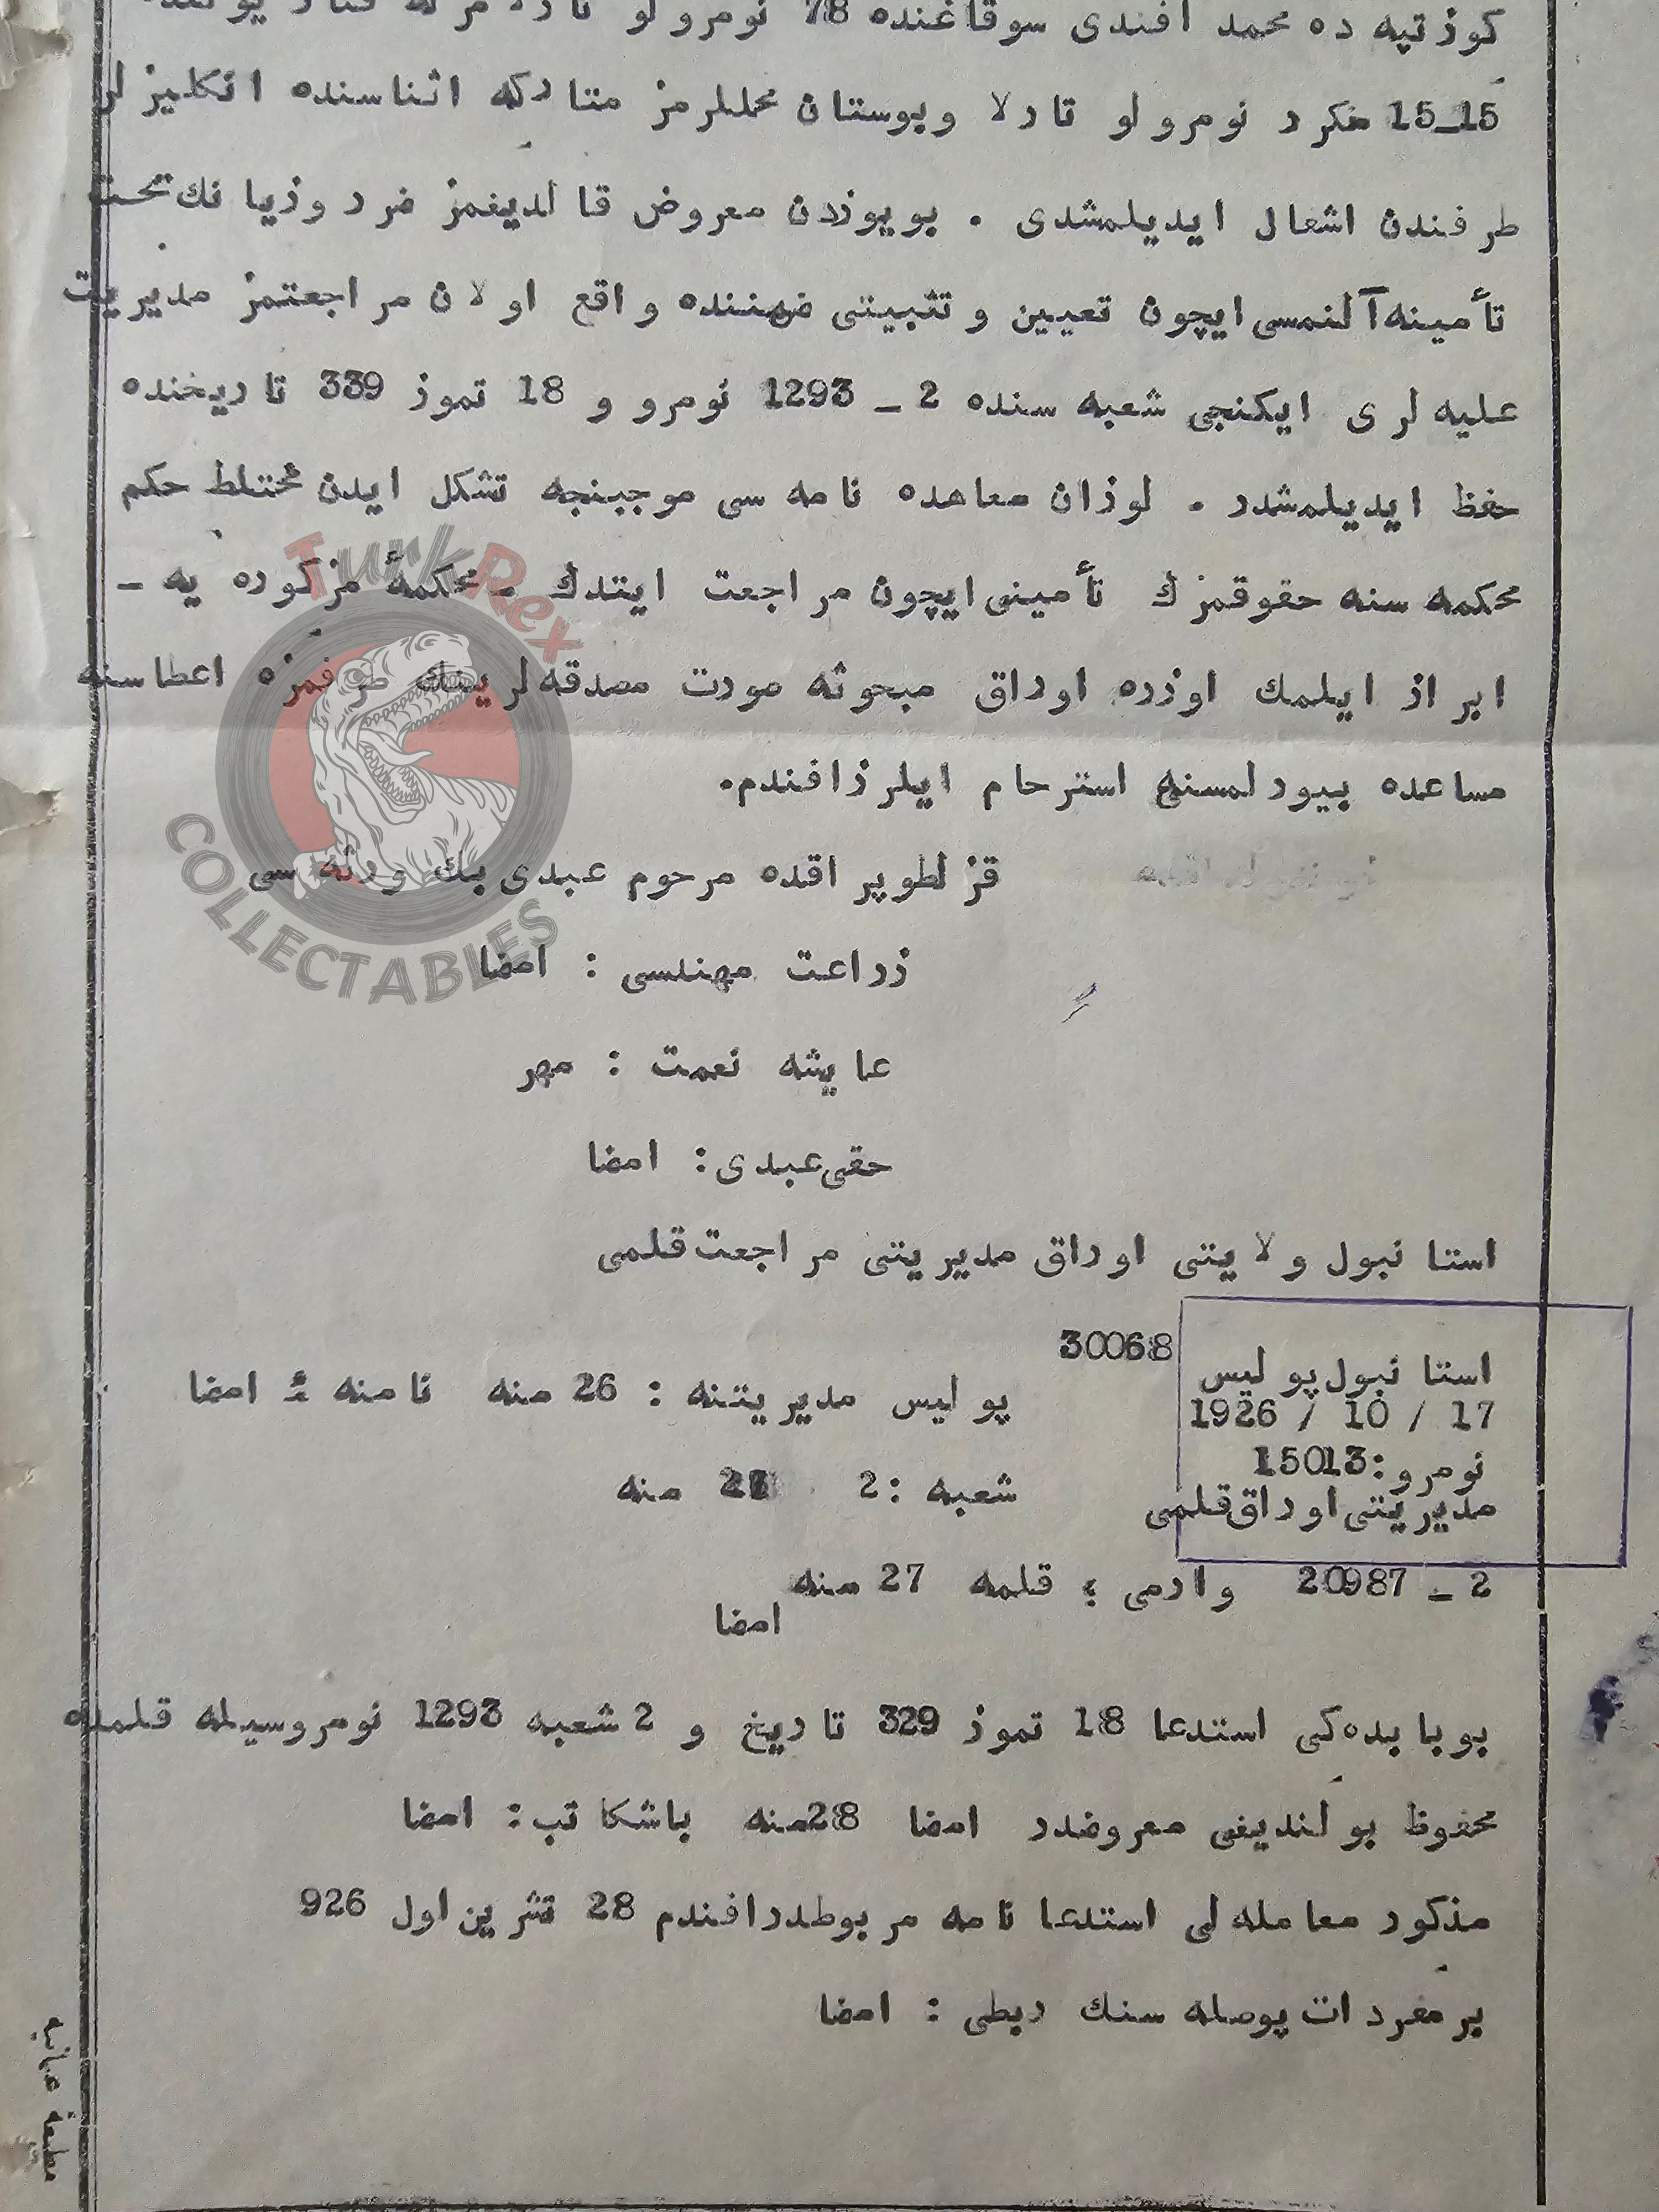 كوزتپه ده محمد افندی سوقاغنده 78 نومرولو تارلا
15_15 مكرر نومرولو تارلا وبوستان محللرمز متاركه اثناسنده انكليزلر
طرفندن اشغال ایدیلمشدی . بویوزدن معروض قالدیغمز ضرر وزیانك تحت
تأمینه آلنمسی ایچون تعیین وتثبیتی ضمننده واقع اولان مراجعتمز مدیریت
علیه لری ایكنجی شعبه سنده 2 _ 1293 نومرو و 18 تموز 339 تاریخنده
حفظ ایدیلمشدر . لوزان معاهده نامه سی موجبنجه تشكل ایدن مختلط حكم
محكمه سنه حقوقمزك تأمینی ایچون مراجعت ایتدك . محكمۀ مزكوره یه _
ابراز ایلمك اوزره اوراق مبحوثه صورت مصدقه لرینك طرفمزه اعطاسنه
مساعده بیورلمسنی استرحام ایلرز افندم.
قزلطوپراقده مرحوم عبدی بك ورثه سی
زراعت مهندسی : امضا
عایشه نعمت : مهر
حقی عبدی : امضا
استانبول ولایتی اوراق مدیریتی مراجعت قلمی
30068
استانبول پولیس
17 / 10 / 1926
نومرو : 15013
مدیریتی اوراق قلمی
پولیس مدیریتنه : 26 منه نامنه امضا
شعبه : 2 منه
2 _ 20987 وارمی ؟ قلمه 27 منه
امضا
بوبابده كی استدعا 18 تموز 329 تاریخ و 2 شعبه 1293 نومروسیله قلمده
محفوظ بولندیغی معروضدر امضا 28 منه باشكاتب : امضا
مذكور معامله لی استدعا نامه مربوطدر افندم 28 تشرین اول 926
بر مفردات پوصله سنك ربطی : امضا
TurkRex
COLLECTABLES